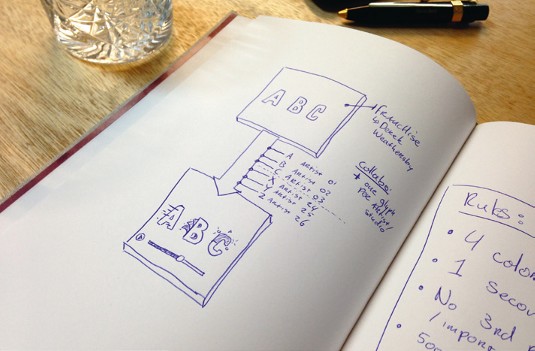 A B C
Franchise
to Derek
Weathersby
A Artist 01
B Artist 02
C Artist 03
X Artist 24
Y Artist 25
Z Artist 26
Collabs:
+ one glyph
per artist/
studio
A B C
Rules:
• 4 colo
• 1 secon
• No 3rd p
/import
• 500